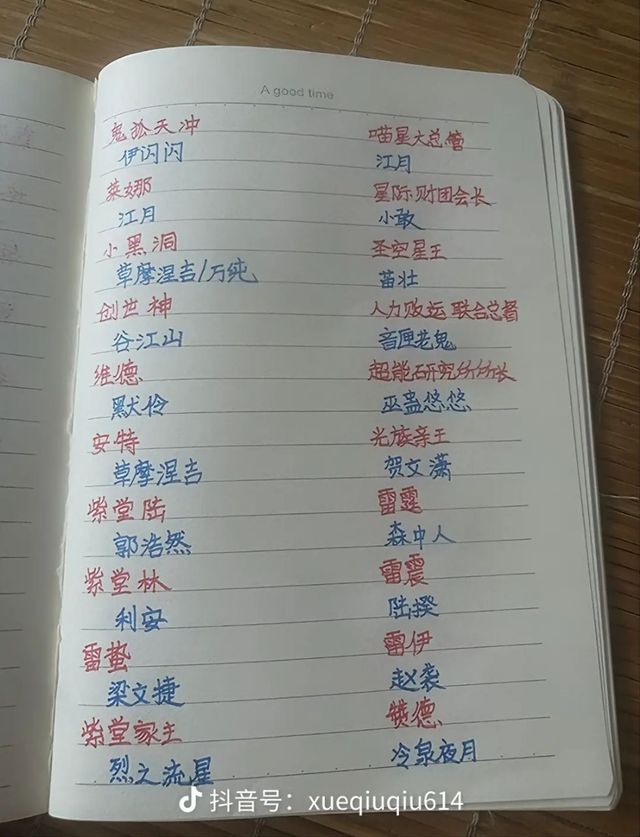 A good time
鬼狐天冲
伊闪闪
莱娜
江月
小黑洞
草摩涅吉/万纯
创世神
谷江山
维德
默伶
安特
草摩涅吉
紫堂陆
郭浩然
紫堂林
利安
雷蛰
梁文捷
紫堂家主
烈之流星
喵星大总管
江月
星际财团会长
小敢
圣空星王
苗壮
人力败运联合总督
音匣老鬼
超能研究所所长
巫蛊悠悠
光族亲王
贺文潇
雷霆
森中人
雷震
陆揆
雷伊
赵袭
赞德
冷泉夜月
抖音号：xueqiuqiu614